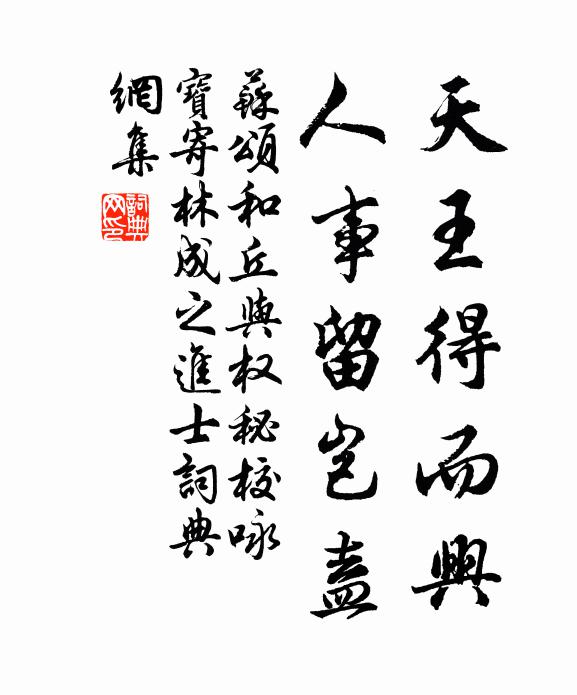 天王得而興
人事留岂盍
蘇頌和丘與权秘校咏
寶寄林成之進士詞典
網集
詞典網印